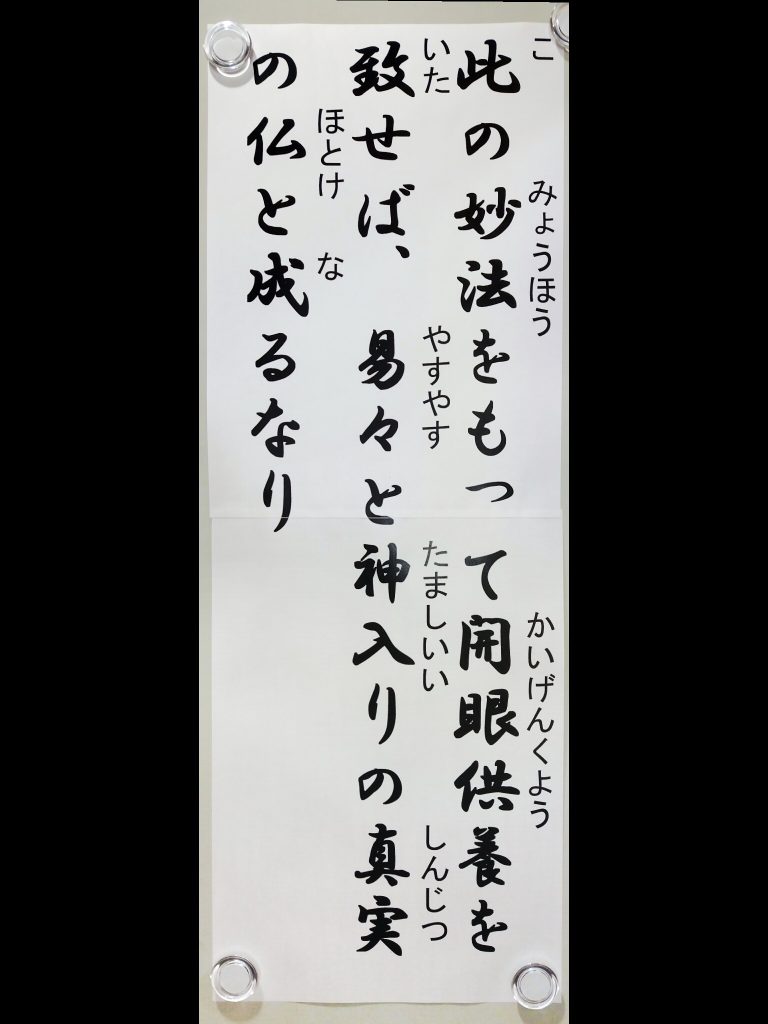 此の妙法をもって開眼供養を
致せば、易々と神入りの真実
の仏と成るなり
こ
みょうほう
かいげんくよう
いた
やすやす
たましいい
しんじつ
ほとけ
な